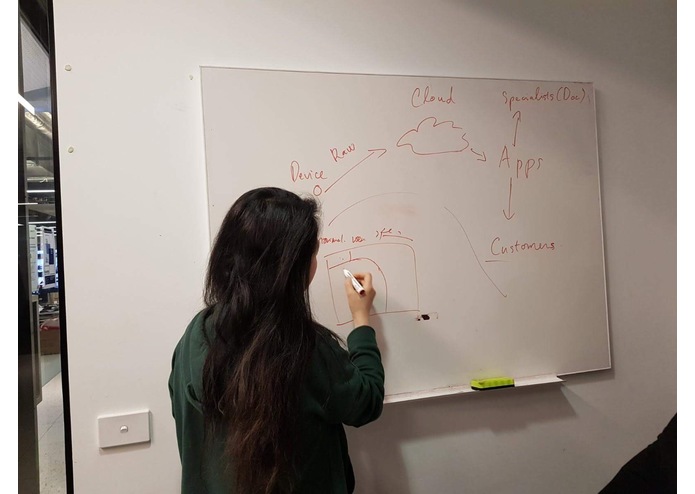 Cloud
Specialists (Doc)
Raw
Device
Apps
Customers